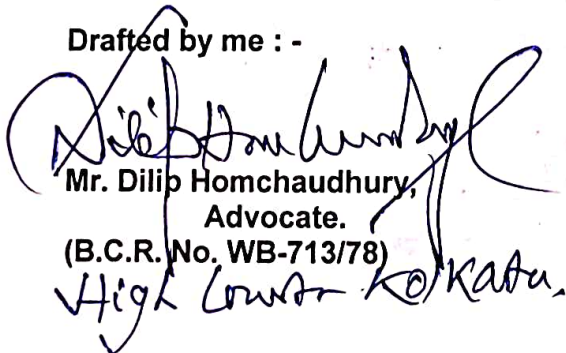 Drafted by me : -
Dilip Homchaudhury
Mr. Dilip Homchaudhury,
Advocate.
(B.C.R. No. WB-713/78)
High Court Kolkata.